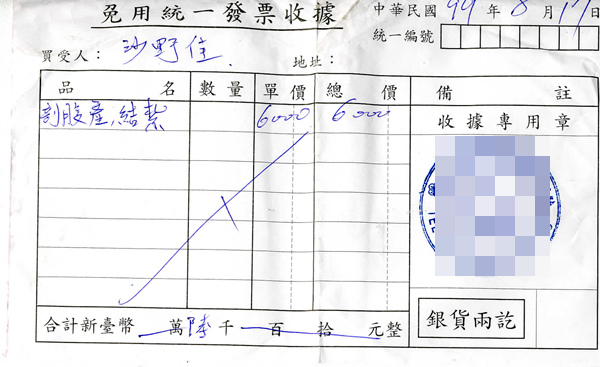 免用統一發票收據
中華民國 99 年 8 月 17 日
統一編號
買受人： 沙野佳
地址：
品 名 數量 單價 總 價 備 註
剖腹產,結紮 6000 6000
收據專用章
合計新臺幣 萬 陸 千 百 拾 元整
銀貨兩訖